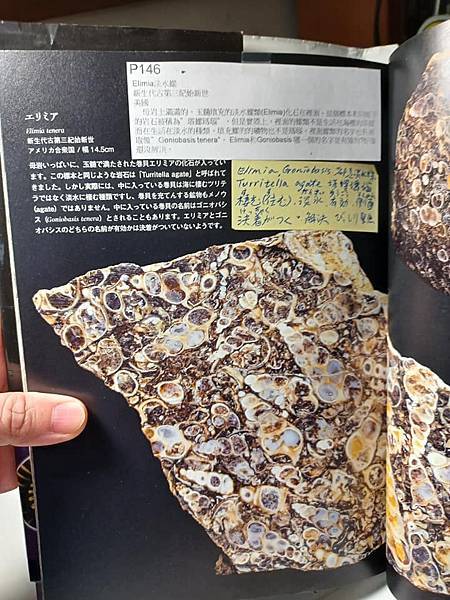 P146
Elimia淡水螺
新生代古第三紀始新世
美國
母岩上滿滿的，玉髓填充的淡水螺類(Elimia)化石在裡面。
的岩石被稱為"塔螺瑪瑙"，但是實際上，裡面的螺類不是生活在海裡的
而在生活在淡水的種類。填充螺的的礦物也不是瑪瑙。裡面螺類的名字也
"Goniobasis tenera"。Elimia和Goniobasis哪一個的名字是有效的
還沒解決。
エリミア
Elimia tenera
新生代古第三紀始新世
アメリカ合衆国 / 幅 14.5cm
母岩いっぱいに、玉髄で満たされた巻貝エリミアの化石が入ってい
ます。この標本と同じような岩石は「Turritella agate」と呼ばれて
きました。しかし実際には、中に入っている巻貝は海に棲むツリテ
ラではなく淡水に棲む種類ですし、巻貝を充てんする鉱物もメノウ
(agate)ではありません。中に入っている巻貝の名前はゴニオバシ
ス(Goniobasis tenera)とされることもあります。エリミアとゴニ
オバシスのどちらの名前が有効かは決着がついていないようです。
Elimia, Goniobasis
Turritella agate 塔螺瑪瑙
棲む(住む) 淡水 有効
決着がつく・解決